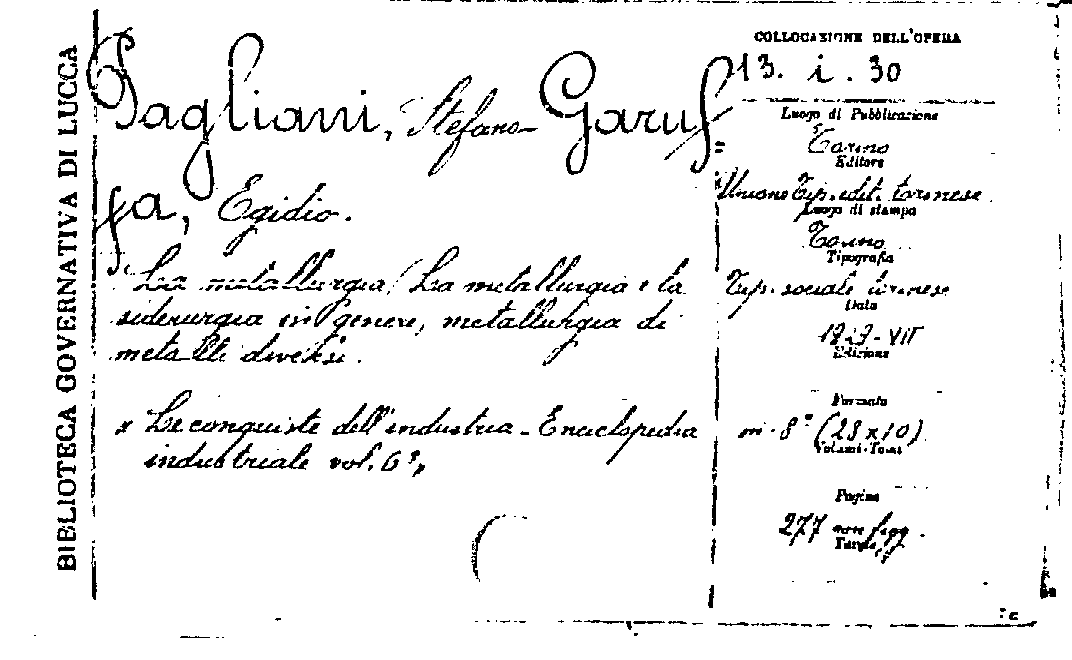 BIBLIOTECA GOVERNATIVA DI LUCCA
Pagliani, Stefano - Garuf=
fa, Egidio.
La metallurgia / La metallurgia e la
siderurgia in genere, metallurgia di
metalli diversi.
Le conquiste dell'industria - Enciclopedia
industriale vol. 6°
COLLOCAZIONE DELL'OPERA
13. i. 30
Luogo di Pubblicazione
Torino
Editore
Unione Tip. edit. torinese
Luogo di stampa
Torino
Tipografia
Tip. sociale torinese
Data
VII
Edizione
Formato
8°
Volumi-Tomi
Pagine
277 con figg.
Tavole